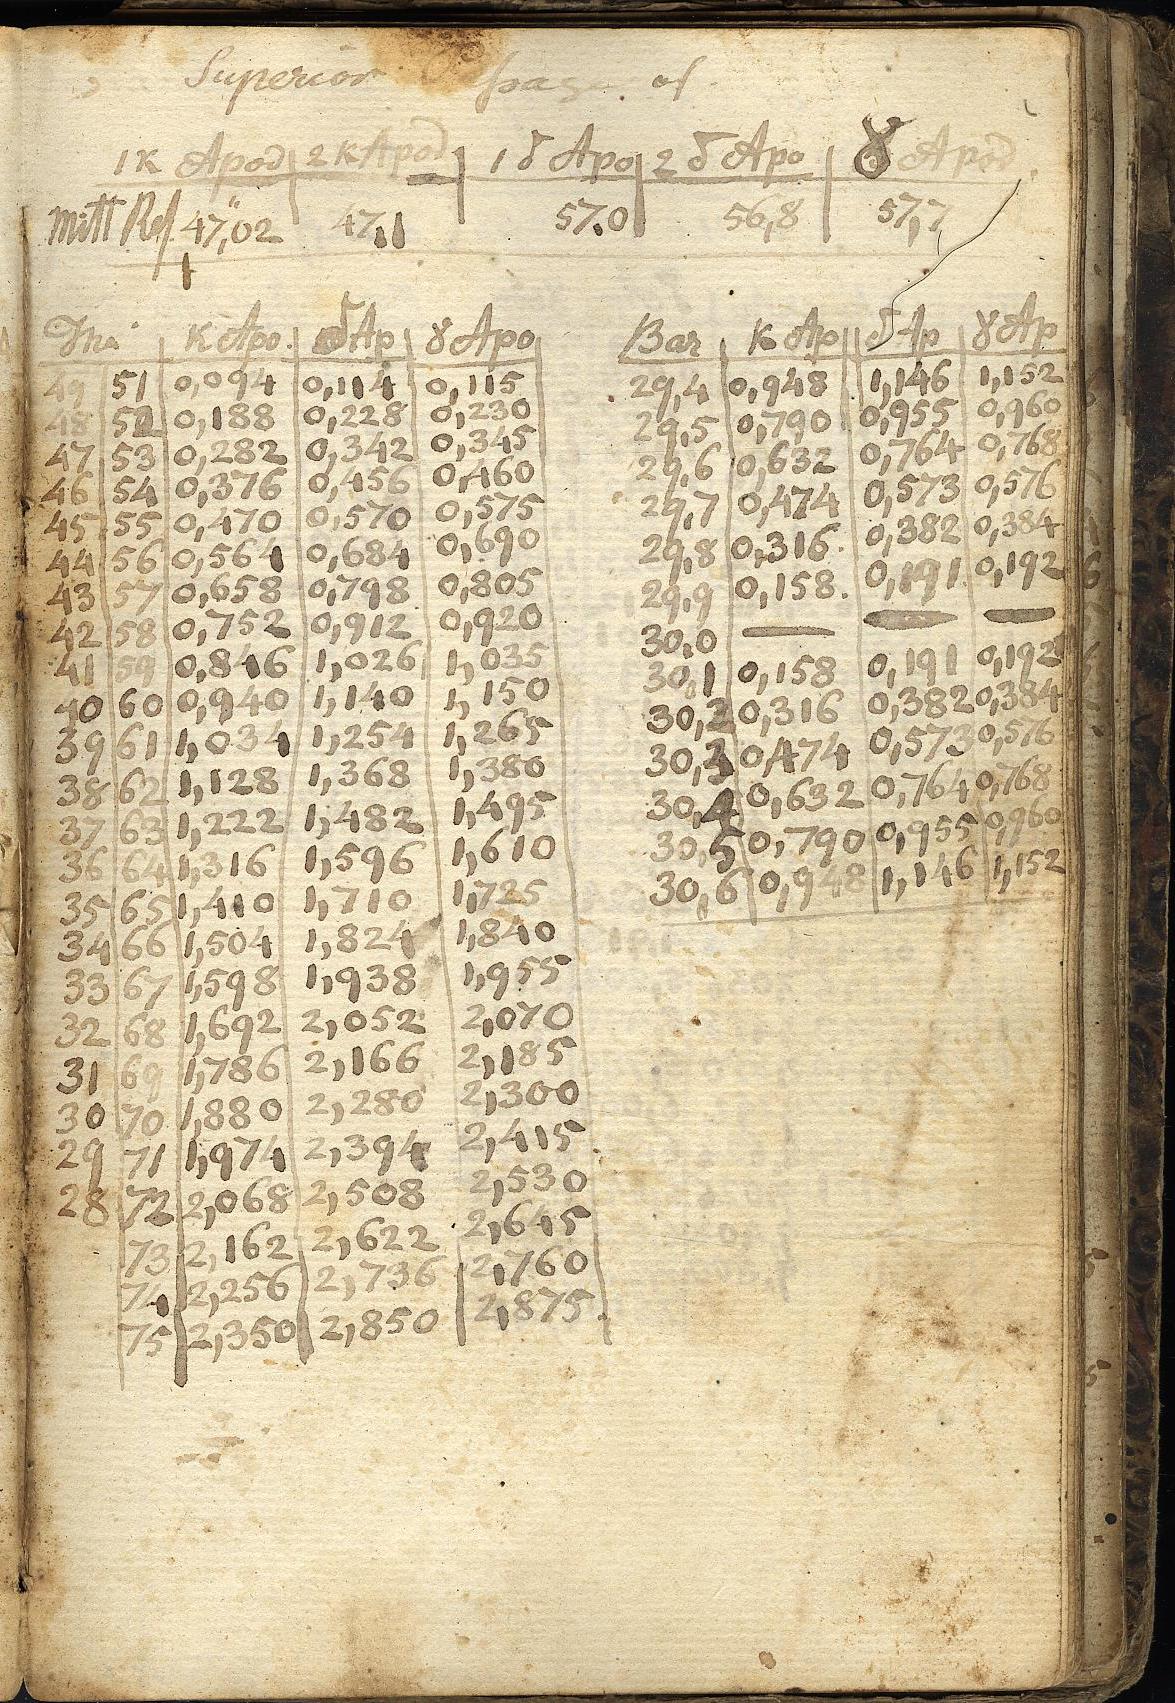 Superior passage of
1 κ Apod 2 κ Apod 1 δ Apo 2 δ Apo γ Apod.
Mitt Ref 47",02 47,1 57.0 56,8 57,7
The κ Apo. δ Ap γ Apo
49 51 0,094 0,114 0,115
48 52 0,188 0,228 0,230
47 53 0,282 0,342 0,345
46 54 0,376 0,456 0,460
45 55 0,470 0,570 0,575
44 56 0,564 0,684 0,690
43 57 0,658 0,798 0,805
42 58 0,752 0,912 0,920
41 59 0,846 1,026 1,035
40 60 0,940 1,140 1,150
39 61 1,034 1,254 1,265
38 62 1,128 1,368 1,380
37 63 1,222 1,482 1,495
36 64 1,316 1,596 1,610
35 65 1,410 1,710 1,725
34 66 1,504 1,824 1,840
33 67 1,598 1,938 1,955
32 68 1,692 2,052 2,070
31 69 1,786 2,166 2,185
30 70 1,880 2,280 2,300
29 71 1,974 2,394 2,415
28 72 2,068 2,508 2,530
73 2,162 2,622 2,645
74 2,256 2,736 2,760
75 2,350 2,850 2,875.
Bar κ Ap δ Ap γ Ap
29,4 0,948 1,146 1,152
29,5 0,790 0,955 0,960
29,6 0,632 0,764 0,768
29,7 0,474 0,573 0,576
29,8 0,316. 0,382 0,384
29,9 0,158. 0,191 0,192
30,0 — — —
30,1 0,158 0,191 0,192
30,2 0,316 0,382 0,384
30,3 0,474 0,573 0,576
30,4 0,632 0,764 0,768
30,5 0,790 0,955 0,960
30,6 0,948 1,146 1,152